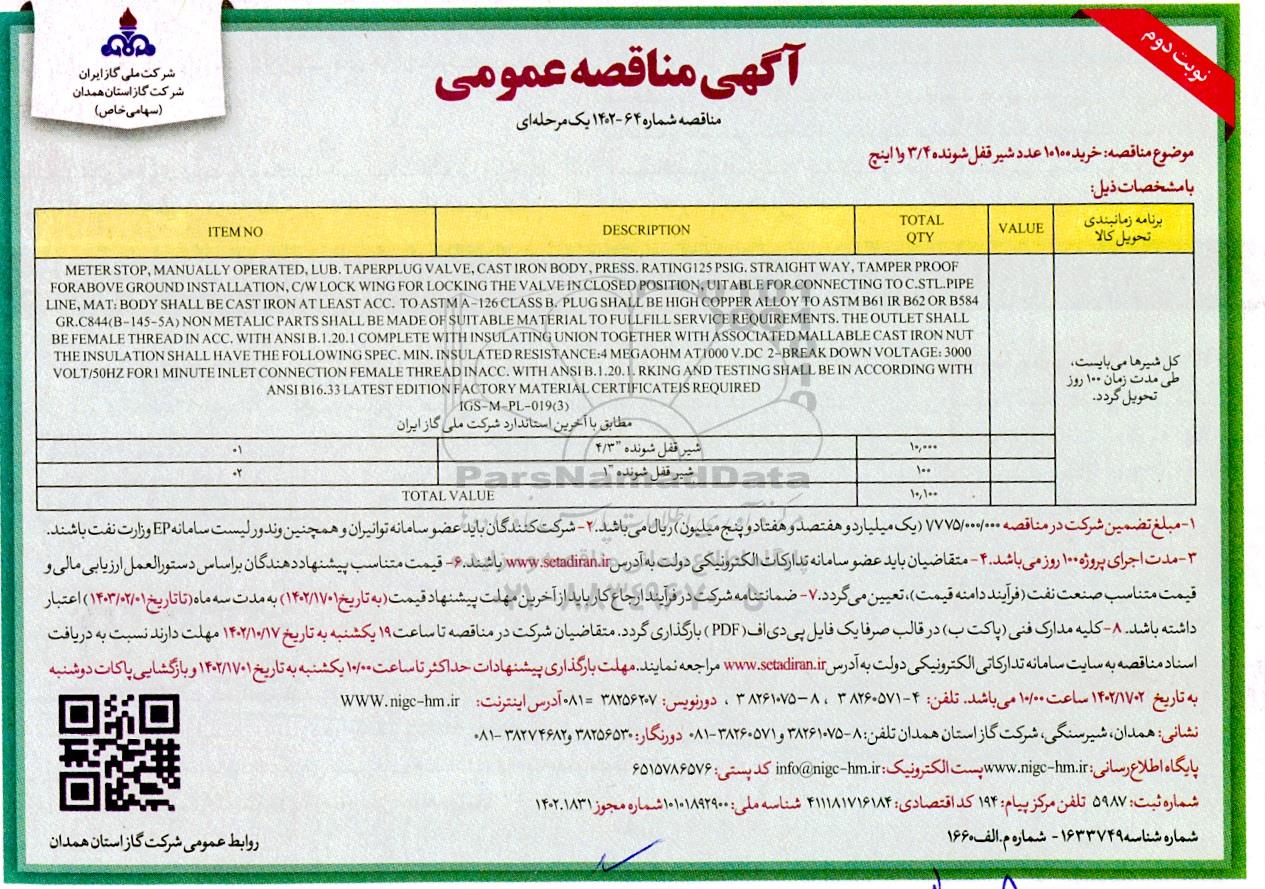 شرکت ملی گاز ایران
شرکت گاز استان همدان
(سهامی خاص)
نوبت دوم
آگهی مناقصه عمومی
مناقصه شماره ۶۴-۱۴۰۲ یک مرحله‌ای
موضوع مناقصه: خرید ۱۰۱۰۰ عدد شیر قفل شونده ۳/۴ و۱ اینچ
با مشخصات ذیل:
ITEM NO DESCRIPTION TOTAL QTY VALUE برنامه زمانبندی تحویل کالا
METER STOP, MANUALLY OPERATED, LUB. TAPERPLUG VALVE, CAST IRON BODY, PRESS. RATING125 PSIG. STRAIGHT WAY, TAMPER PROOF
FORABOVE GROUND INSTALLATION, C/W LOCK WING FOR LOCKING THE VALVE IN CLOSED POSITION, UITABLE FOR CONNECTING TO C.STL.PIPE
LINE, MAT: BODY SHALL BE CAST IRON AT LEAST ACC. TO ASTM A-126 CLASS B. PLUG SHALL BE HIGH COPPER ALLOY TO ASTM B61 IR B62 OR B584
GR.C844(B-145-5A) NON METALIC PARTS SHALL BE MADE OF SUITABLE MATERIAL TO FULLFILL SERVICE REQUIREMENTS. THE OUTLET SHALL
BE FEMALE THREAD IN ACC. WITH ANSI B.1.20.1 COMPLETE WITH INSULATING UNION TOGETHER WITH ASSOCIATED MALLABLE CAST IRON NUT
THE INSULATION SHALL HAVE THE FOLLOWING SPEC. MIN. INSULATED RESISTANCE:4 MEGAOHM AT1000 V.DC 2-BREAK DOWN VOLTAGE: 3000
VOLT/50HZ FOR1 MINUTE INLET CONNECTION FEMALE THREAD INACC. WITH ANSI B.1.20.1. RKING AND TESTING SHALL BE IN ACCORDING WITH
ANSI B16.33 LATEST EDITION FACTORY MATERIAL CERTIFICATEIS REQUIRED
IGS-M-PL-019(3)
مطابق با آخرین استاندارد شرکت ملی گاز ایران
کل شیرها می‌بایست،
طی مدت زمان ۱۰۰ روز
تحویل گردد.
۰۱ شیر قفل شونده "۴/۳ ۱۰,۰۰۰
۰۲ شیر قفل شونده "۱ ۱۰۰
TOTAL VALUE ۱۰,۱۰۰
ParsNamadData
۱- مبلغ تضمین شرکت در مناقصه ۷۷۷۵/۰۰۰/۰۰۰ (یک میلیارد و هفتصد و هفتاد و پنج میلیون) ریال می‌باشد. ۲- شرکت کنندگان باید عضو سامانه توانیران و همچنین وندور لیست سامانه EP وزارت نفت باشند.
۳- مدت اجرای پروژه ۱۰۰ روز می‌باشد. ۴- متقاضیان باید عضو سامانه تدارکات الکترونیکی دولت به آدرس www.setadiran.ir باشند. ۶- قیمت متناسب پیشنهاد دهندگان براساس دستورالعمل ارزیابی مالی و
قیمت متناسب صنعت نفت (فرآیند دامنه قیمت)، تعیین می‌گردد. ۷- ضمانتنامه شرکت در فرآیند ارجاع کار باید از آخرین مهلت پیشنهاد قیمت (به تاریخ ۱۴۰۲/۱۷۰۱) به مدت سه ماه (تا تاریخ ۱۴۰۳/۰۲/۰۱) اعتبار
داشته باشد. ۸- کلیه مدارک فنی (پاکت ب) در قالب صرفا یک فایل پی‌دی‌اف (PDF) بارگذاری گردد. متقاضیان شرکت در مناقصه تا ساعت ۱۹ یکشنبه به تاریخ ۱۴۰۲/۱۰/۱۷ مهلت دارند نسبت به دریافت
اسناد مناقصه به سایت سامانه تدارکاتی الکترونیکی دولت به آدرس www.setadiran.ir مراجعه نمایند. مهلت بارگذاری پیشنهادات حداکثر تا ساعت ۱۰/۰۰ یکشنبه به تاریخ ۱۴۰۲/۱۷۰۱ و بازگشایی پاکات دوشنبه
به تاریخ ۱۴۰۲/۱۷۰۲ ساعت ۱۰/۰۰ می‌باشد. تلفن: ۴-۳۸۲۶۰۵۷۱ ، ۸-۳۸۲۶۱۰۷۵ ، دورنویس: ۳۸۲۵۶۲۰۷ =۰۸۱ آدرس اینترنت: WWW.nigc-hm.ir
نشانی: همدان، شیرسنگی، شرکت گاز استان همدان تلفن: ۸-۳۸۲۶۱۰۷۵ و ۳۸۲۶۰۵۷۱-۰۸۱ دورنگار: ۳۸۲۵۶۵۳۰ و ۳۸۲۷۴۶۸۲-۰۸۱
پایگاه اطلاع رسانی: www.nigc-hm.ir پست الکترونیک: info@nigc-hm.ir کد پستی: ۶۵۱۵۷۸۶۵۷۶
شماره ثبت: ۵۹۸۷ تلفن مرکز پیام: ۱۹۴ کد اقتصادی: ۴۱۱۱۸۱۷۱۶۱۸۴ شناسه ملی: ۱۰۱۰۱۸۹۲۹۰۰ شماره مجوز ۱۴۰۲.۱۸۳۱
شماره شناسه ۱۶۳۳۷۴۹ - شماره م.الف ۱۶۶۰
روابط عمومی شرکت گاز استان همدان